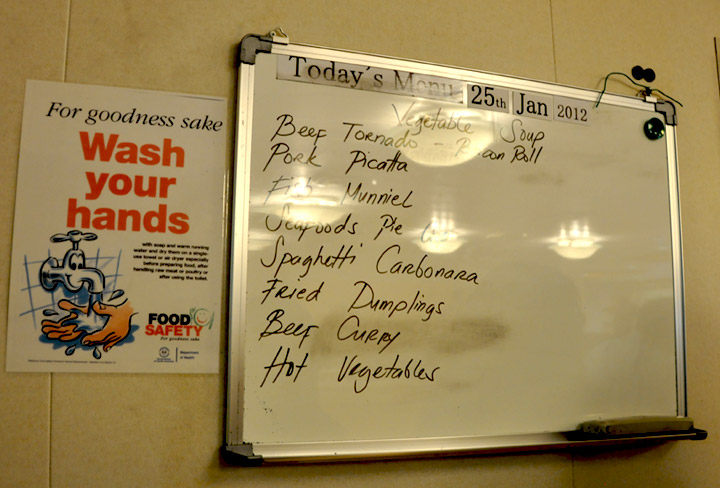 For goodness sake
Wash
your
hands
with soap and warm running
water and dry them on a single-
use towel or air dryer especially
before preparing food, after
handling raw meat or poultry or
after using the toilet.
FOOD
SAFETY
For goodness sake
Department
of Health
Today's Menu 25th Jan 2012
Vegetable Soup
Beef Tornado - Roll
Pork Picatta
Fish Munniel
Seafoods Pie
Spaghetti Carbonara
Fried Dumplings
Beef Curry
Hot Vegetables